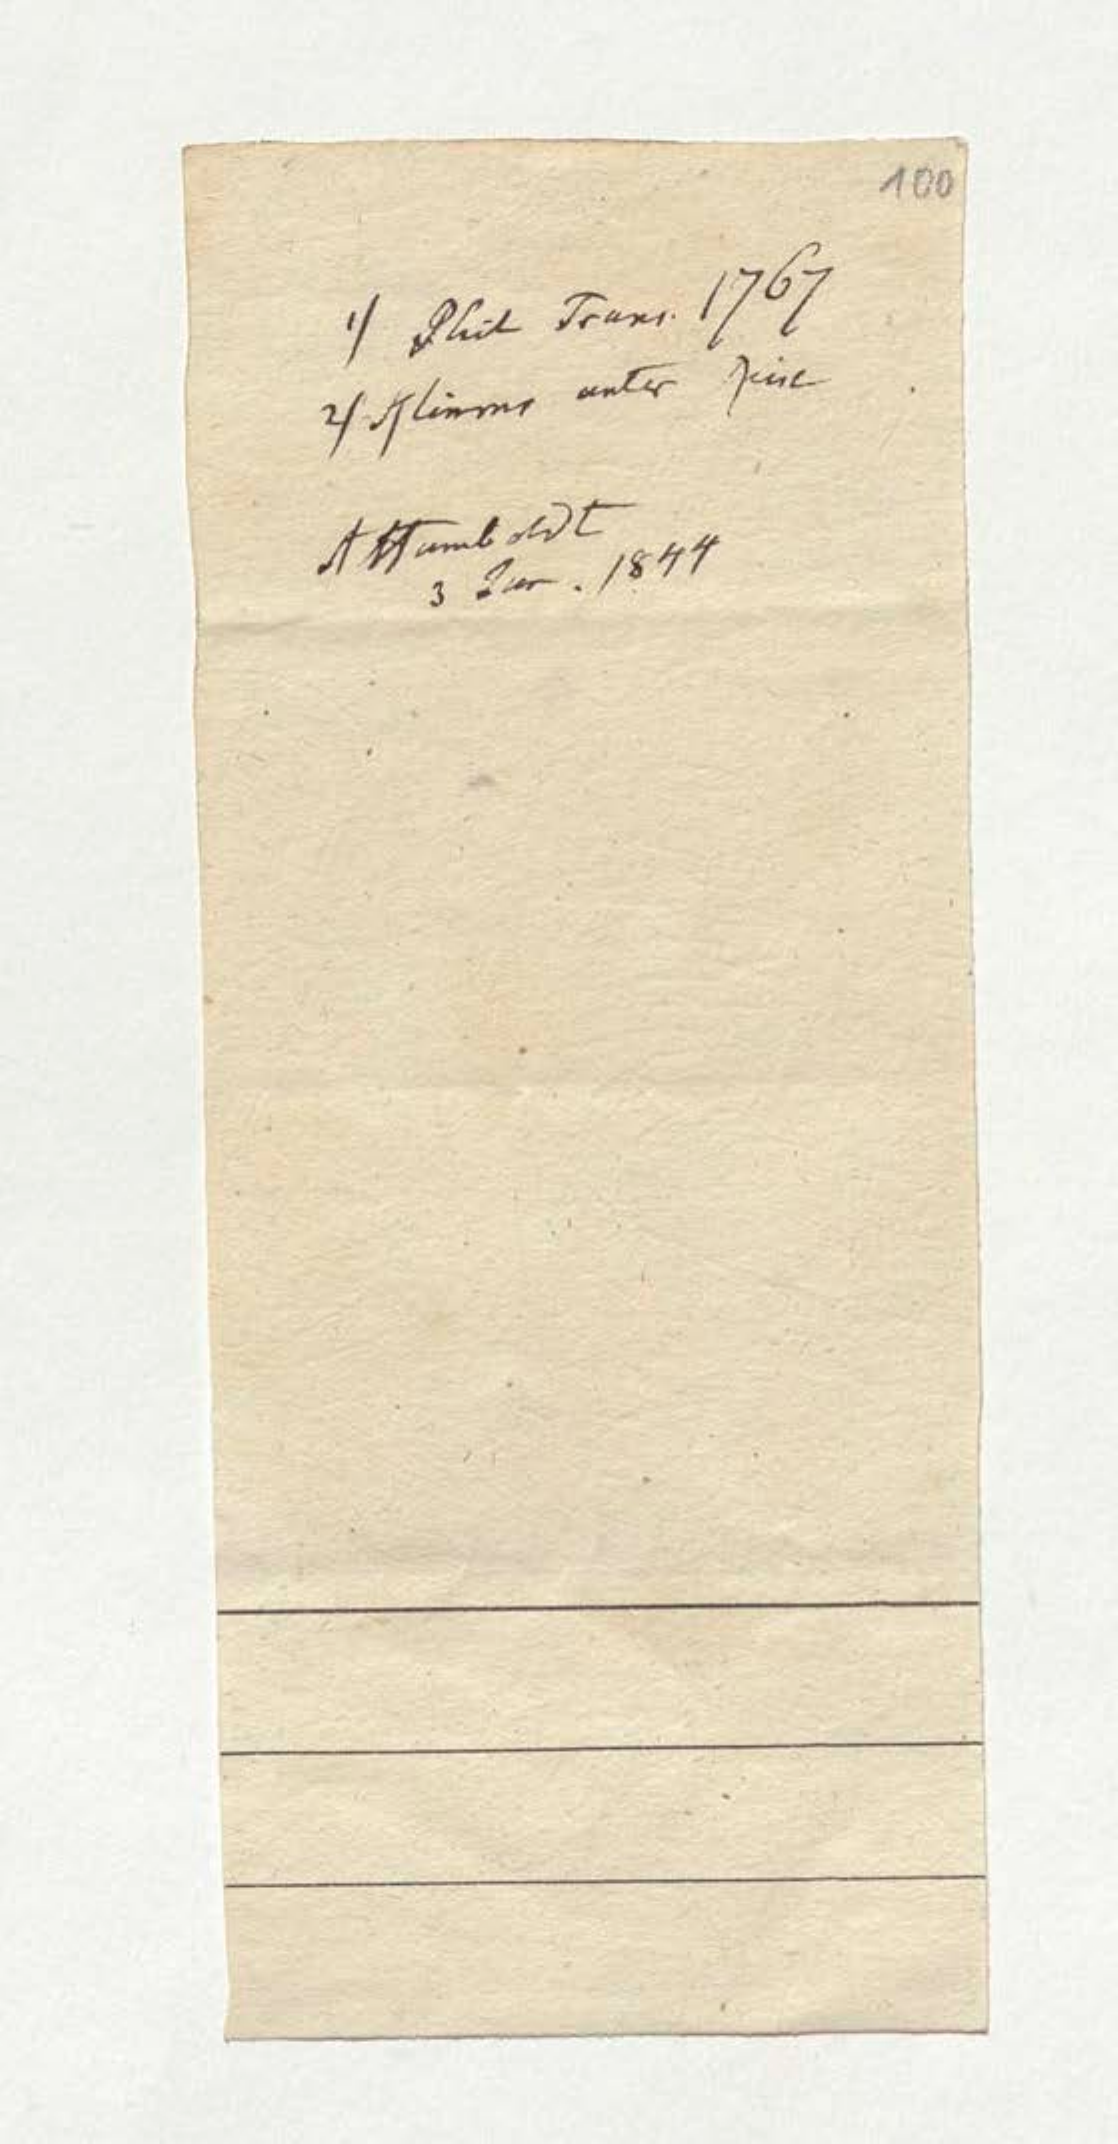 100
1) Phil Trans. 1767
2) unter
AHumboldt
3 Jan. 1844